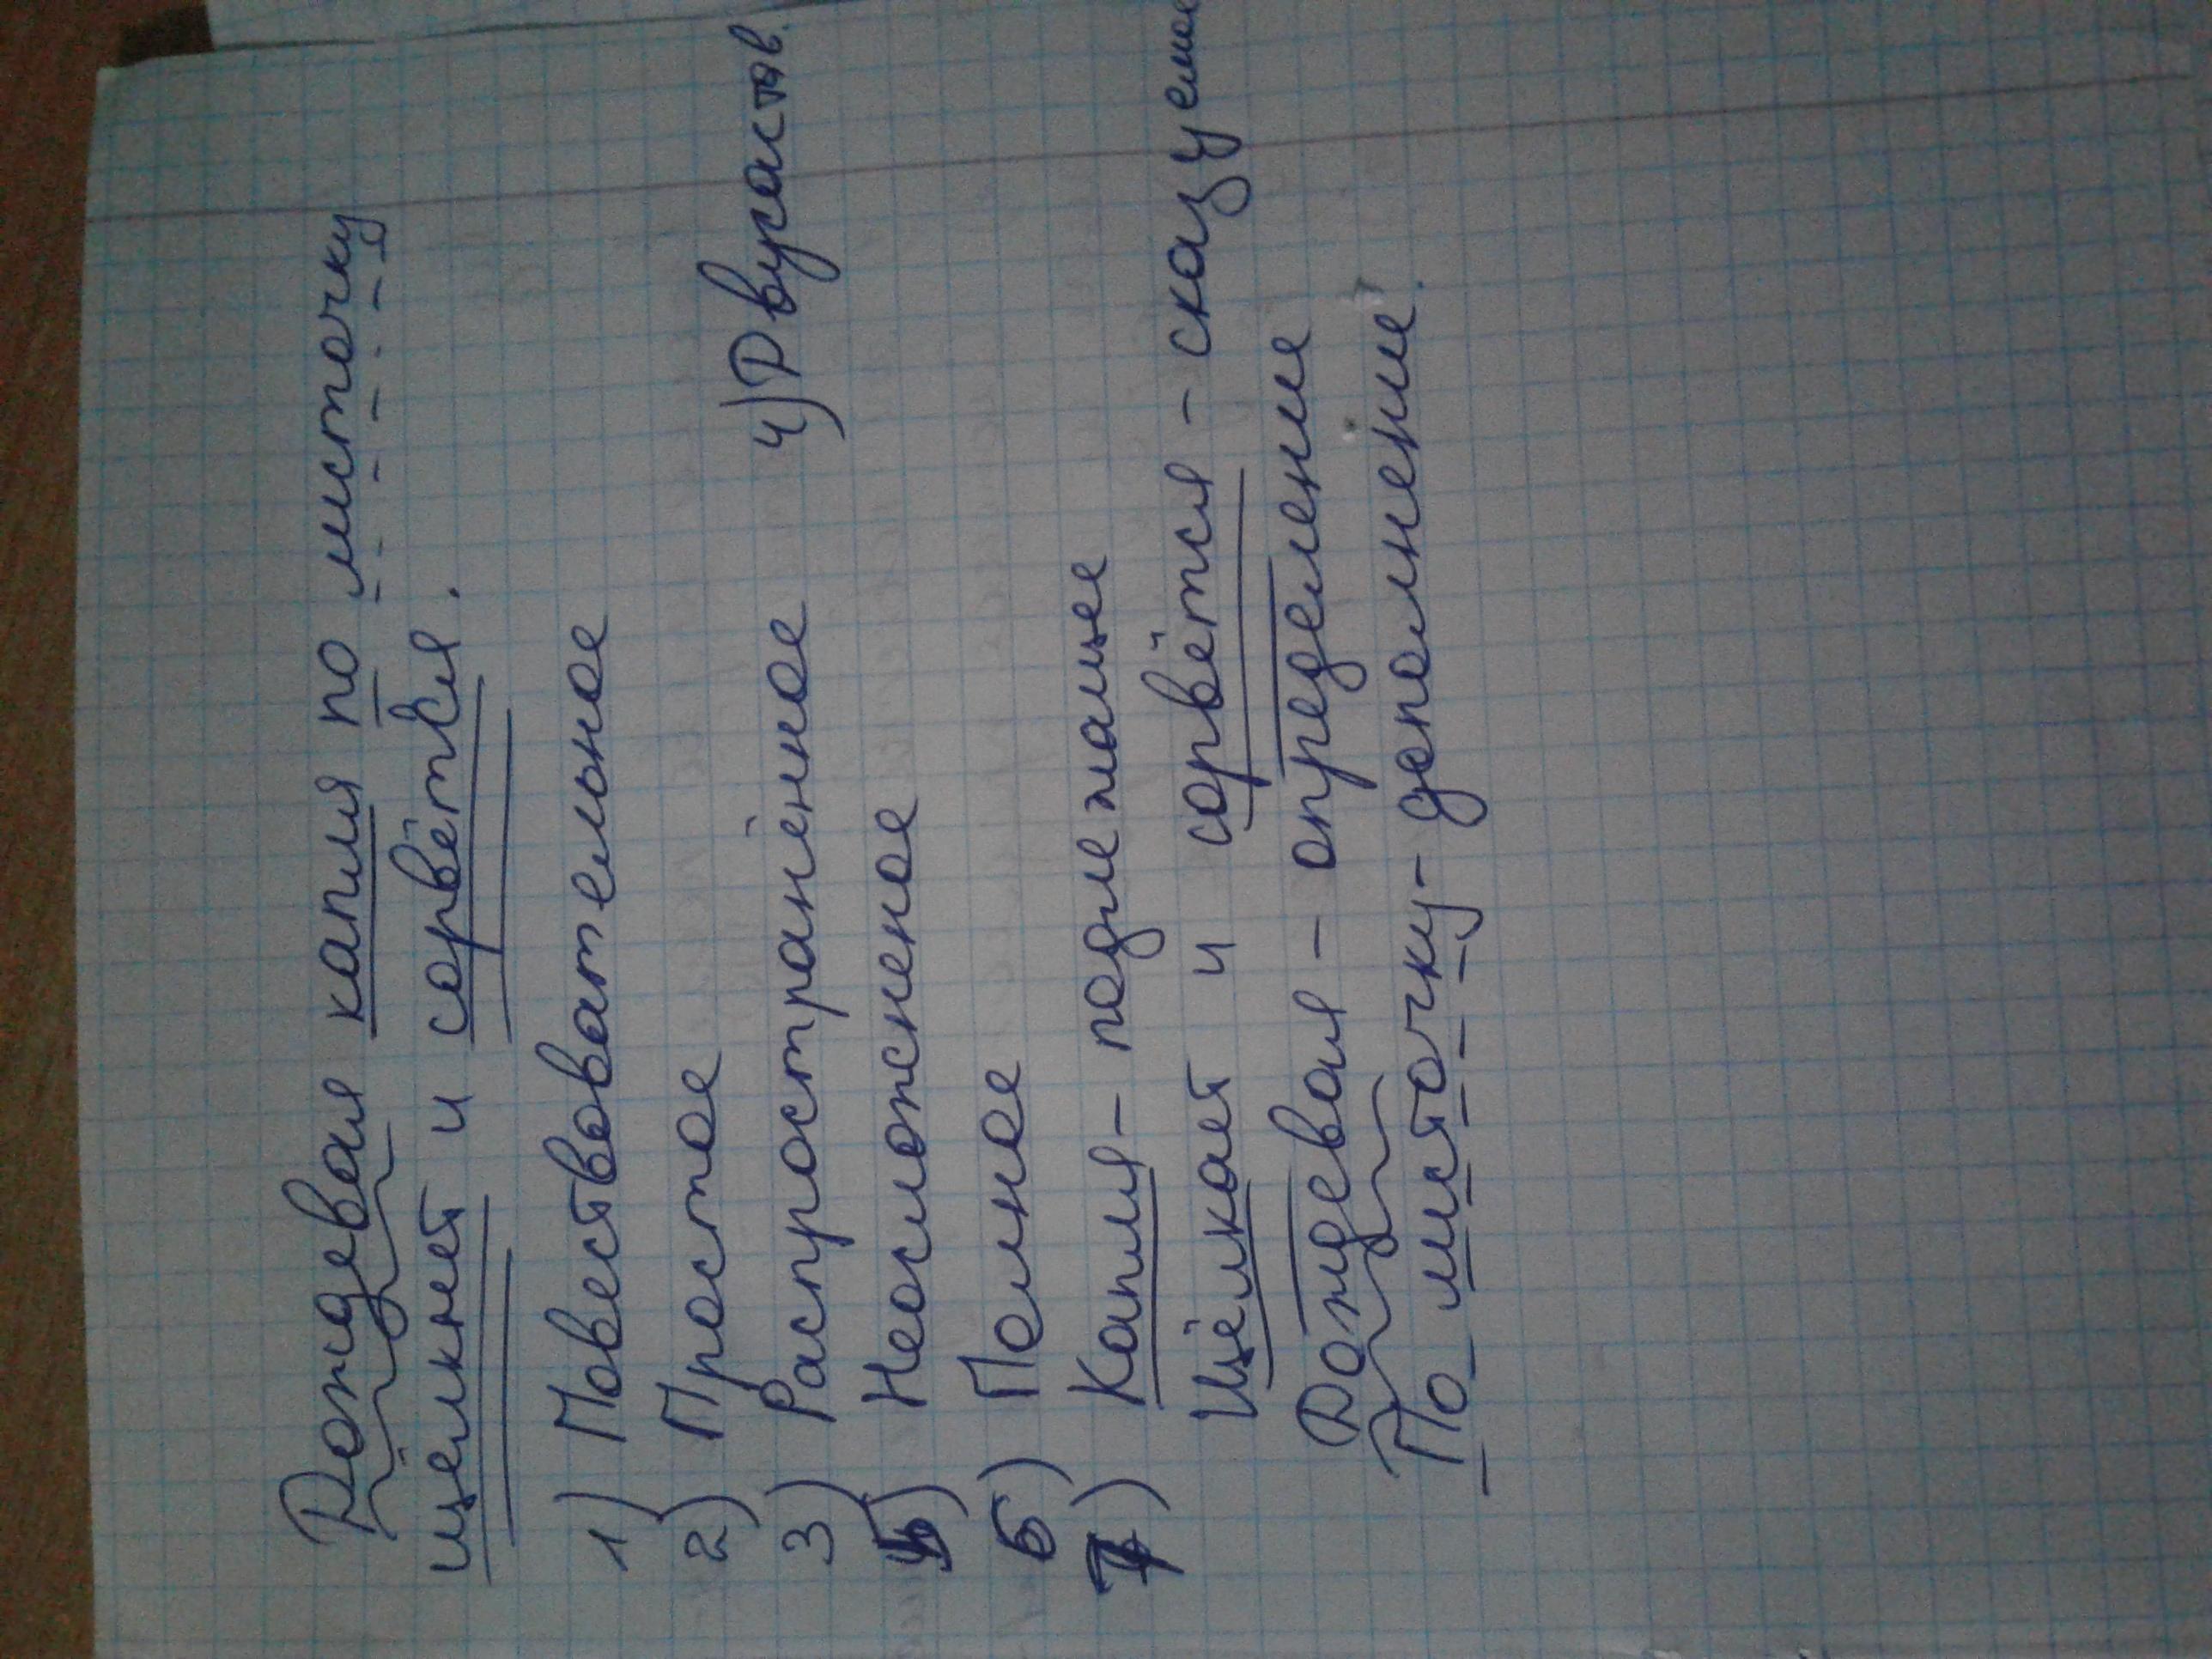 Дождевая капля по листочку
щёлкнет и сорвётся.
1) Повествовательное
2) Простое
3) Распространённое 4) Двусостав.
5) Неосложненое
6) Полное
7) Капля - подлежащее
Щёлкает и сорвётся - сказуемое
Дождевая - определение
По листочку - дополнение.